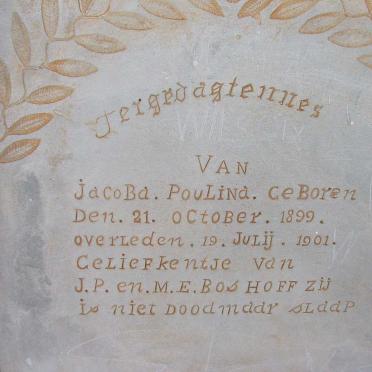 Tergedagtennes
VAN
JacoBa. PouLina. GeBoren
Den. 21. OCtober. 1899.
overLeden. 19. JuLij. 1901.
GeLiefkentje van
J.P. en. M.E. Bos HOFF zij
is niet DooDmaar sLaaP